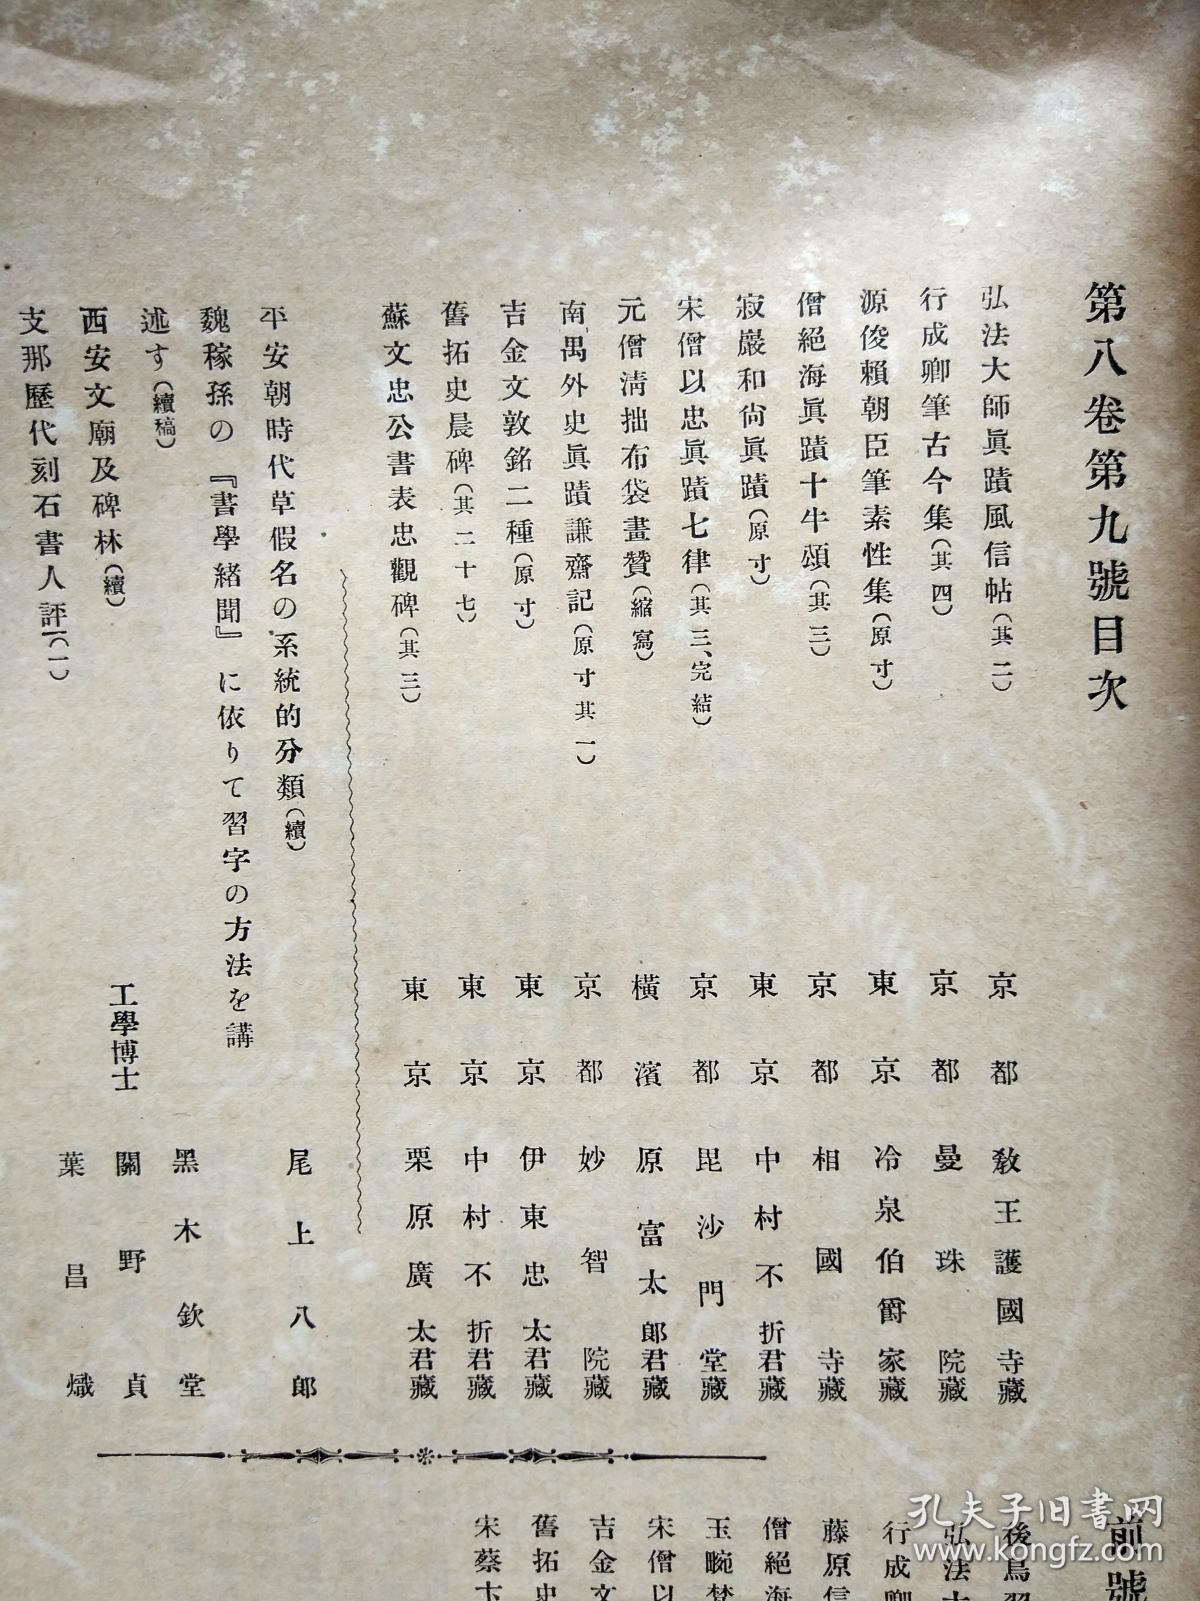 第八卷第九號目次
弘法大師眞蹟風信帖(其二) 京都 敎王護國寺藏
行成卿筆古今集(其四) 京都 曼珠院藏
源俊賴朝臣筆素性集(原寸) 東京 冷泉伯爵家藏
僧絕海眞蹟十牛頌(其三) 京都 相國寺藏
寂嚴和尙眞蹟(原寸) 東京 中村不折君藏
宋僧以忠眞蹟七律(其三、完結) 京都 毘沙門堂藏
元僧淸拙布袋畫贊(縮寫) 橫濱 原富太郞君藏
南禺外史眞蹟謙齋記(原寸其一) 京都 妙智院藏
吉金文敦銘二種(原寸) 東京 伊東忠太君藏
舊拓史晨碑(其二十七) 東京 中村不折君藏
蘇文忠公書表忠觀碑(其三) 東京 栗原廣太君藏
平安朝時代草假名の系統的分類(續) 尾上八郞
魏稼孫の『書學緖聞』に依りて習字の方法を講
述す(續稿) 黑木欽堂
西安文廟及碑林(續) 工學博士 關野貞
支那歷代刻石書人評(一) 葉昌熾
前號
後鳥羽
弘法大
行成卿
藤原信
僧絕海
玉畹梵
宋僧以
吉金文
舊拓史
宋蔡卞
孔夫子旧书网
www.kongfz.com